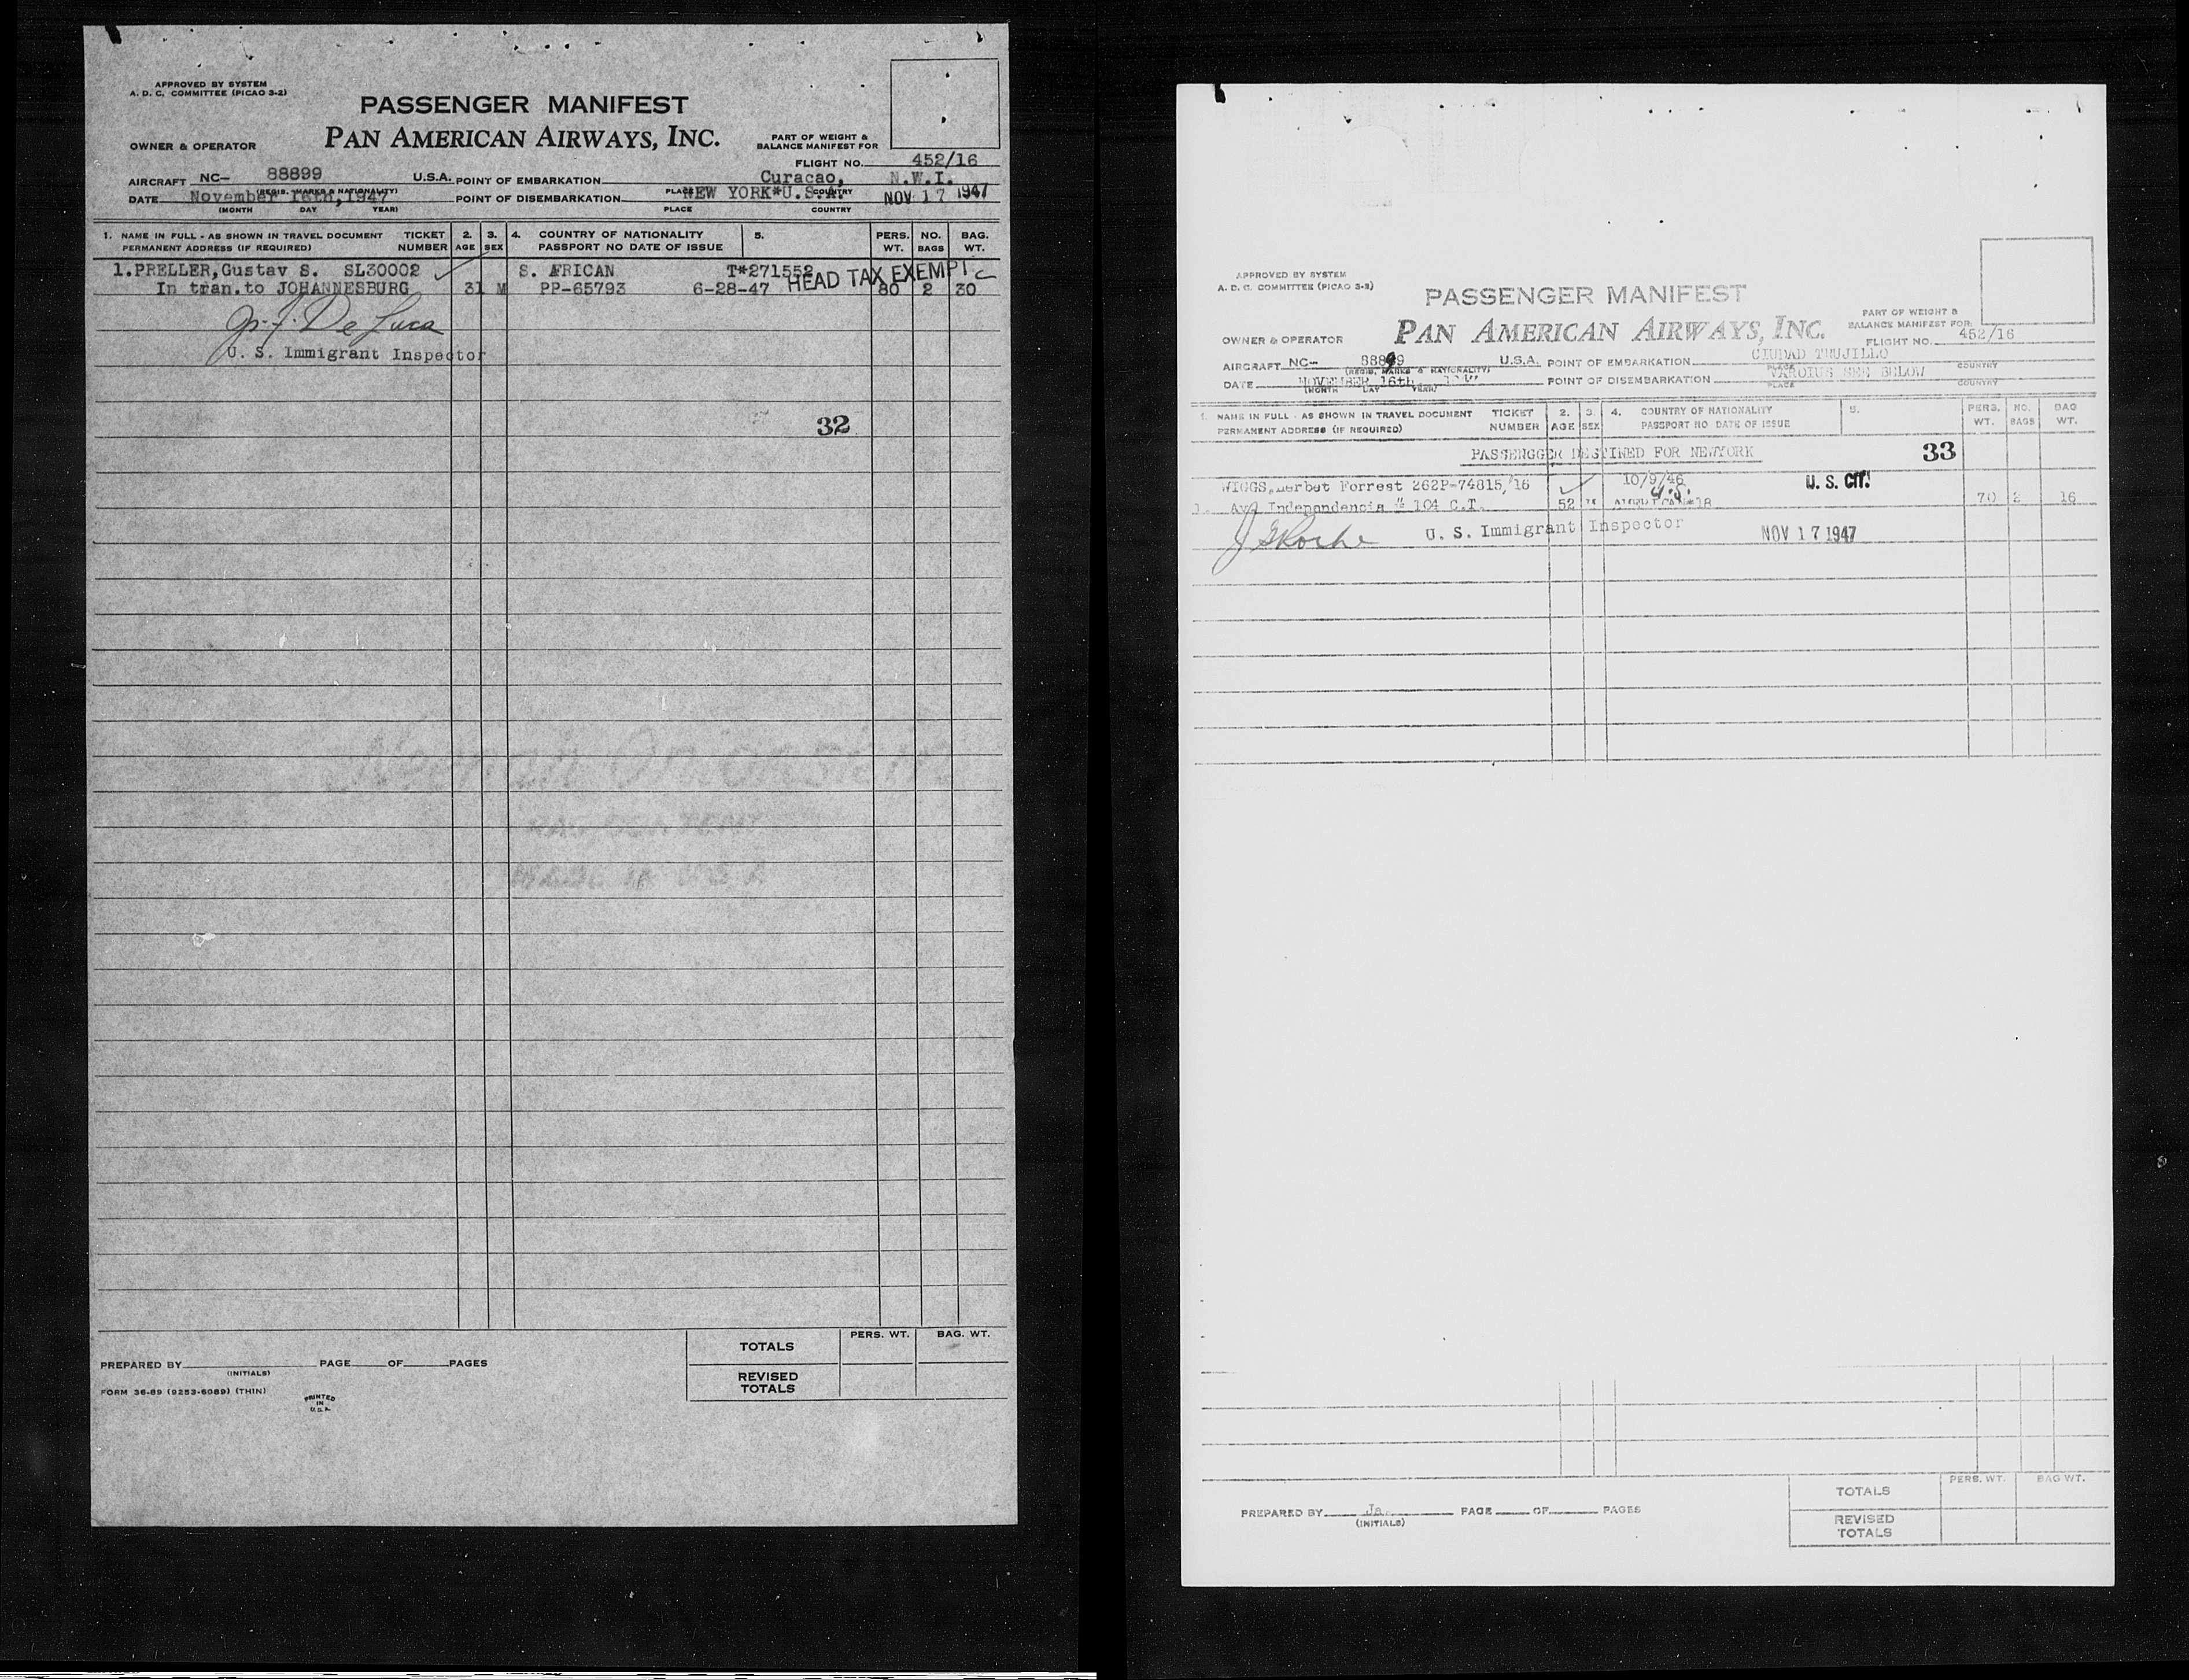 APPROVED BY SYSTEM
A. D. C. COMMITTEE (PICAO 3-2)
PASSENGER MANIFEST
OWNER & OPERATOR PAN AMERICAN AIRWAYS, INC. PART OF WEIGHT &
BALANCE MANIFEST FOR
FLIGHT NO. 452/16
AIRCRAFT NC- 88899 U.S.A. POINT OF EMBARKATION Curacao, N.W.I.
(REGIS. MARKS & NATIONALITY) PLACE COUNTRY
DATE November 16th, 1947 POINT OF DISEMBARKATION NEW YORK*U.S.A. NOV 17 1947
(MONTH DAY YEAR) PLACE COUNTRY
1. NAME IN FULL - AS SHOWN IN TRAVEL DOCUMENT TICKET 2. 3. 4. COUNTRY OF NATIONALITY 5. PERS. NO. BAG.
PERMANENT ADDRESS (IF REQUIRED) NUMBER AGE SEX PASSPORT NO DATE OF ISSUE WT. BAGS WT.
1. PRELLER, Gustav S. SL30002 S. AFRICAN T*271552
HEAD TAX EXEMPT
In tran. to JOHANNESBURG 31 M PP-65793 6-28-47 80 2 30
De Luca
U. S. Immigrant Inspector
32
RAG CONTENT
MADE IN USA
TOTALS PERS. WT. BAG. WT.
PREPARED BY PAGE OF PAGES
(INITIALS)
REVISED
TOTALS
FORM 36-89 (9253-6089) (THIN)
PRINTED
IN
U.S.A.
APPROVED BY SYSTEM
A. D. C. COMMITTEE (PICAO 3-2)
PASSENGER MANIFEST
OWNER & OPERATOR PAN AMERICAN AIRWAYS, INC. PART OF WEIGHT &
BALANCE MANIFEST FOR
FLIGHT NO. 452/16
AIRCRAFT NC- 88899 U.S.A. POINT OF EMBARKATION CIUDAD TRUJILLO
(REGIS. MARKS & NATIONALITY) PLACE COUNTRY
DATE NOVEMBER 16th POINT OF DISEMBARKATION VAROIUS SEE BELOW
(MONTH DAY YEAR) PLACE COUNTRY
1. NAME IN FULL - AS SHOWN IN TRAVEL DOCUMENT TICKET 2. 3. 4. COUNTRY OF NATIONALITY 5. PERS. NO. BAG
PERMANENT ADDRESS (IF REQUIRED) NUMBER AGE SEX PASSPORT NO DATE OF ISSUE WT. BAGS WT.
PASSENGGER DESTINED FOR NEWYORK 33
WIGGS, Herbet Forrest 262P-74815/16 10/9/46 U. S. CIT.
U.S.
1. Av. Independencia # 104 C.T. 52 70 2 16
J G Roche U. S. Immigrant Inspector NOV 17 1947
TOTALS PERS. WT. BAG WT.
PREPARED BY Ja. PAGE OF PAGES
(INITIALS)
REVISED
TOTALS